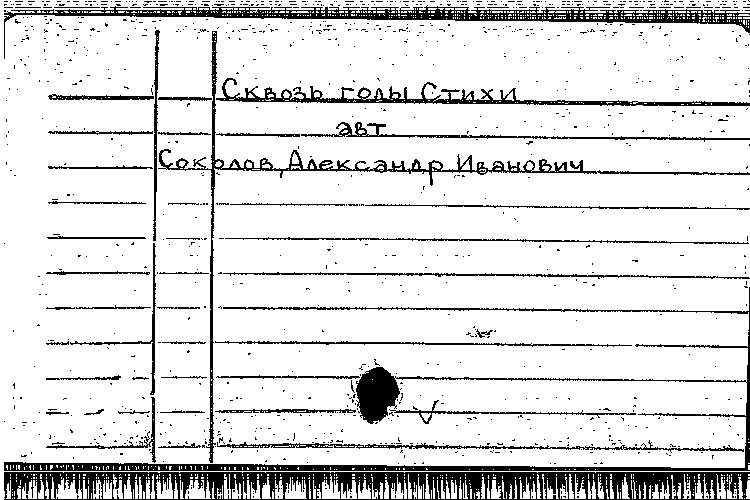 Сквозь годы Стихи
авт
Соколов, Александр Иванович